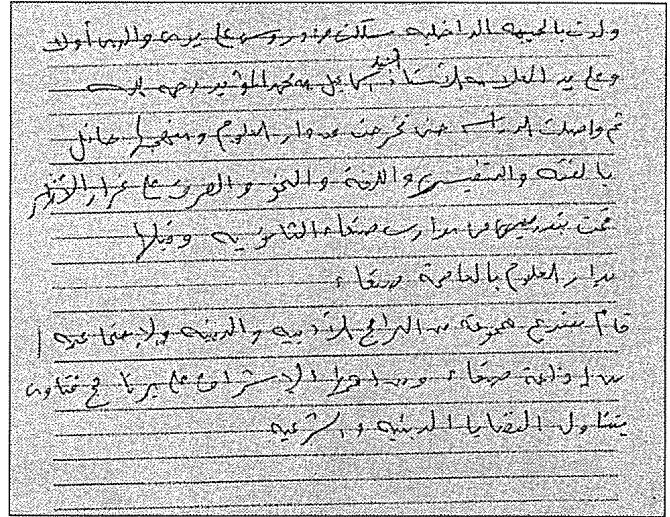 ولدت بالجبهه الداخليه سلكت دروسي على يد والدي أولا
وعلى يد العلامه الأستاذ السيد إسماعيل محمد المؤيد رحمه الله
ثم واصلت الدراسه حتى تخرجت من دار العلوم ومنهجها حافل
بالفقه والتفسير واللغة والنحو والصرف على غرار الأزهر
قمت بتدريسها في مدارس صنعاء الثانويه وقبلها
بدار العلوم بالعاصمة صنعاء
قام بتقديم مجموعة من البرامج الأدبيه والدينيه والإجتماعيه
من إذاعة صنعاء ومن أهمها الإشراف على برنامج فتاوى
يتناول القضايا الدينيه والشرعيه